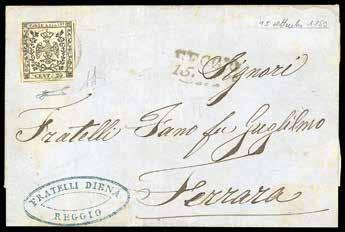 15 ottobre 1852
POSTE ESTENSI
CENT. 25
REGGIO
15
Signori
Fratelli Fano fu Guglielmo
Ferrara
FRATELLI DIENA
REGGIO